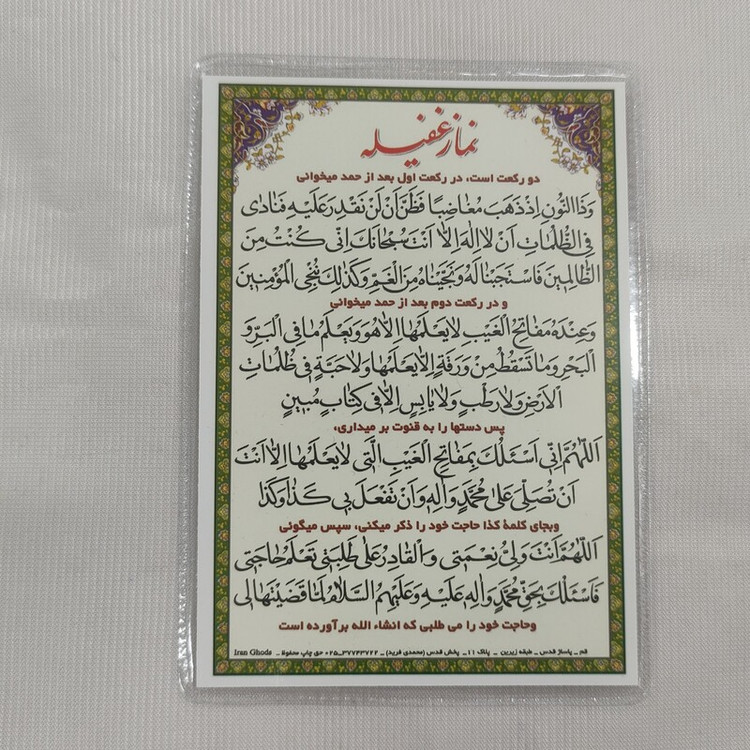 نماز غفیله
دو رکعت است، در رکعت اول بعد از حمد میخوانی
وَذَا النُّونِ اِذْ ذَهَبَ مُغَاضِبًا فَظَنَّ اَنْ لَنْ نَقْدِرَ عَلَیْهِ فَنَادٰی
فِی الظُّلُمَاتِ اَنْ لَا اِلٰهَ اِلَّا اَنْتَ سُبْحَانَكَ اِنّٖی کُنْتُ مِنَ
الظَّالِمٖینَ فَاسْتَجَبْنَا لَهُ وَنَجَّیْنَاهُ مِنَ الْغَمِّ وَکَذٰلِكَ نُنْجِی الْمُؤْمِنٖینَ
و در رکعت دوم بعد از حمد میخوانی
وَعِنْدَهُ مَفَاتِحُ الْغَیْبِ لَا یَعْلَمُهَا اِلَّا هُوَ وَیَعْلَمُ مَا فِی الْبَرِّ وَ
الْبَحْرِ وَمَا تَسْقُطُ مِنْ وَرَقَةٍ اِلَّا یَعْلَمُهَا وَلَا حَبَّةٍ فٖی ظُلُمَاتِ
الْاَرْضِ وَلَا رَطْبٍ وَلَا یَابِسٍ اِلَّا فٖی کِتَابٍ مُبٖینٍ
پس دستها را به قنوت بر میداری،
اَللّٰهُمَّ اِنّٖی اَسْئَلُكَ بِمَفَاتِحِ الْغَیْبِ الَّتٖی لَا یَعْلَمُهَا اِلَّا اَنْتَ
اَنْ تُصَلِّیَ عَلٰی مُحَمَّدٍ وَاٰلِهٖ وَاَنْ تَفْعَلَ بٖی کَذَا وَکَذَا
وبجای کلمهٔ کذا حاجت خود را ذکر میکنی، سپس میگوئی
اَللّٰهُمَّ اَنْتَ وَلِیُّ نِعْمَتٖی وَالْقَادِرُ عَلٰی طَلِبَتٖی تَعْلَمُ حَاجَتٖی
فَاَسْئَلُكَ بِحَقِّ مُحَمَّدٍ وَاٰلِهٖ عَلَیْهِ وَعَلَیْهِمُ السَّلَامُ لَمَّا قَضَیْتَهَا لٖی
وحاجت خود را می طلبی که انشاء الله برآورده است
قم _ پاساژ قدس _ طبقه زیرین _ پلاک ۱۱ _ پخش قدس (محمدی فرید) _ ۳۷۷۴۳۷۲۲_۰۲۵ حق چاپ محفوظ _ Iran Ghods